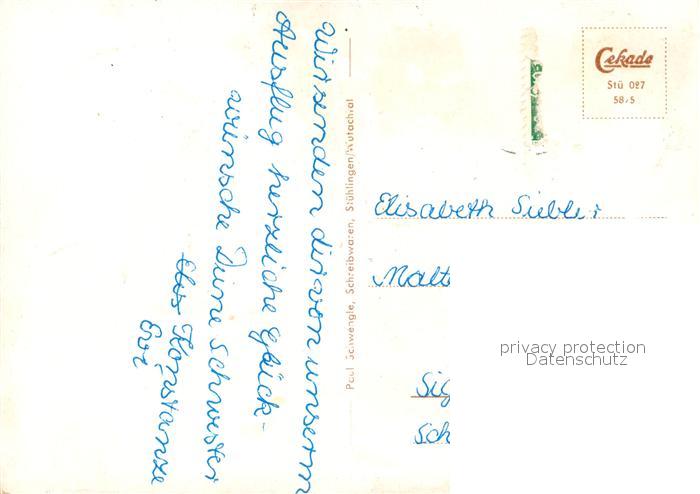 Wir senden dir von unserm
Ausflug herzliche Glück-
wünsche Deine Schwester
Konstanze
Paul Schwengle, Schreibwaren, Stühlingen/Wutachtal
Cekade
Stü 087
58/5
Elisabeth Siebler
Malt
Sig
Sch
privacy protection
Datenschutz